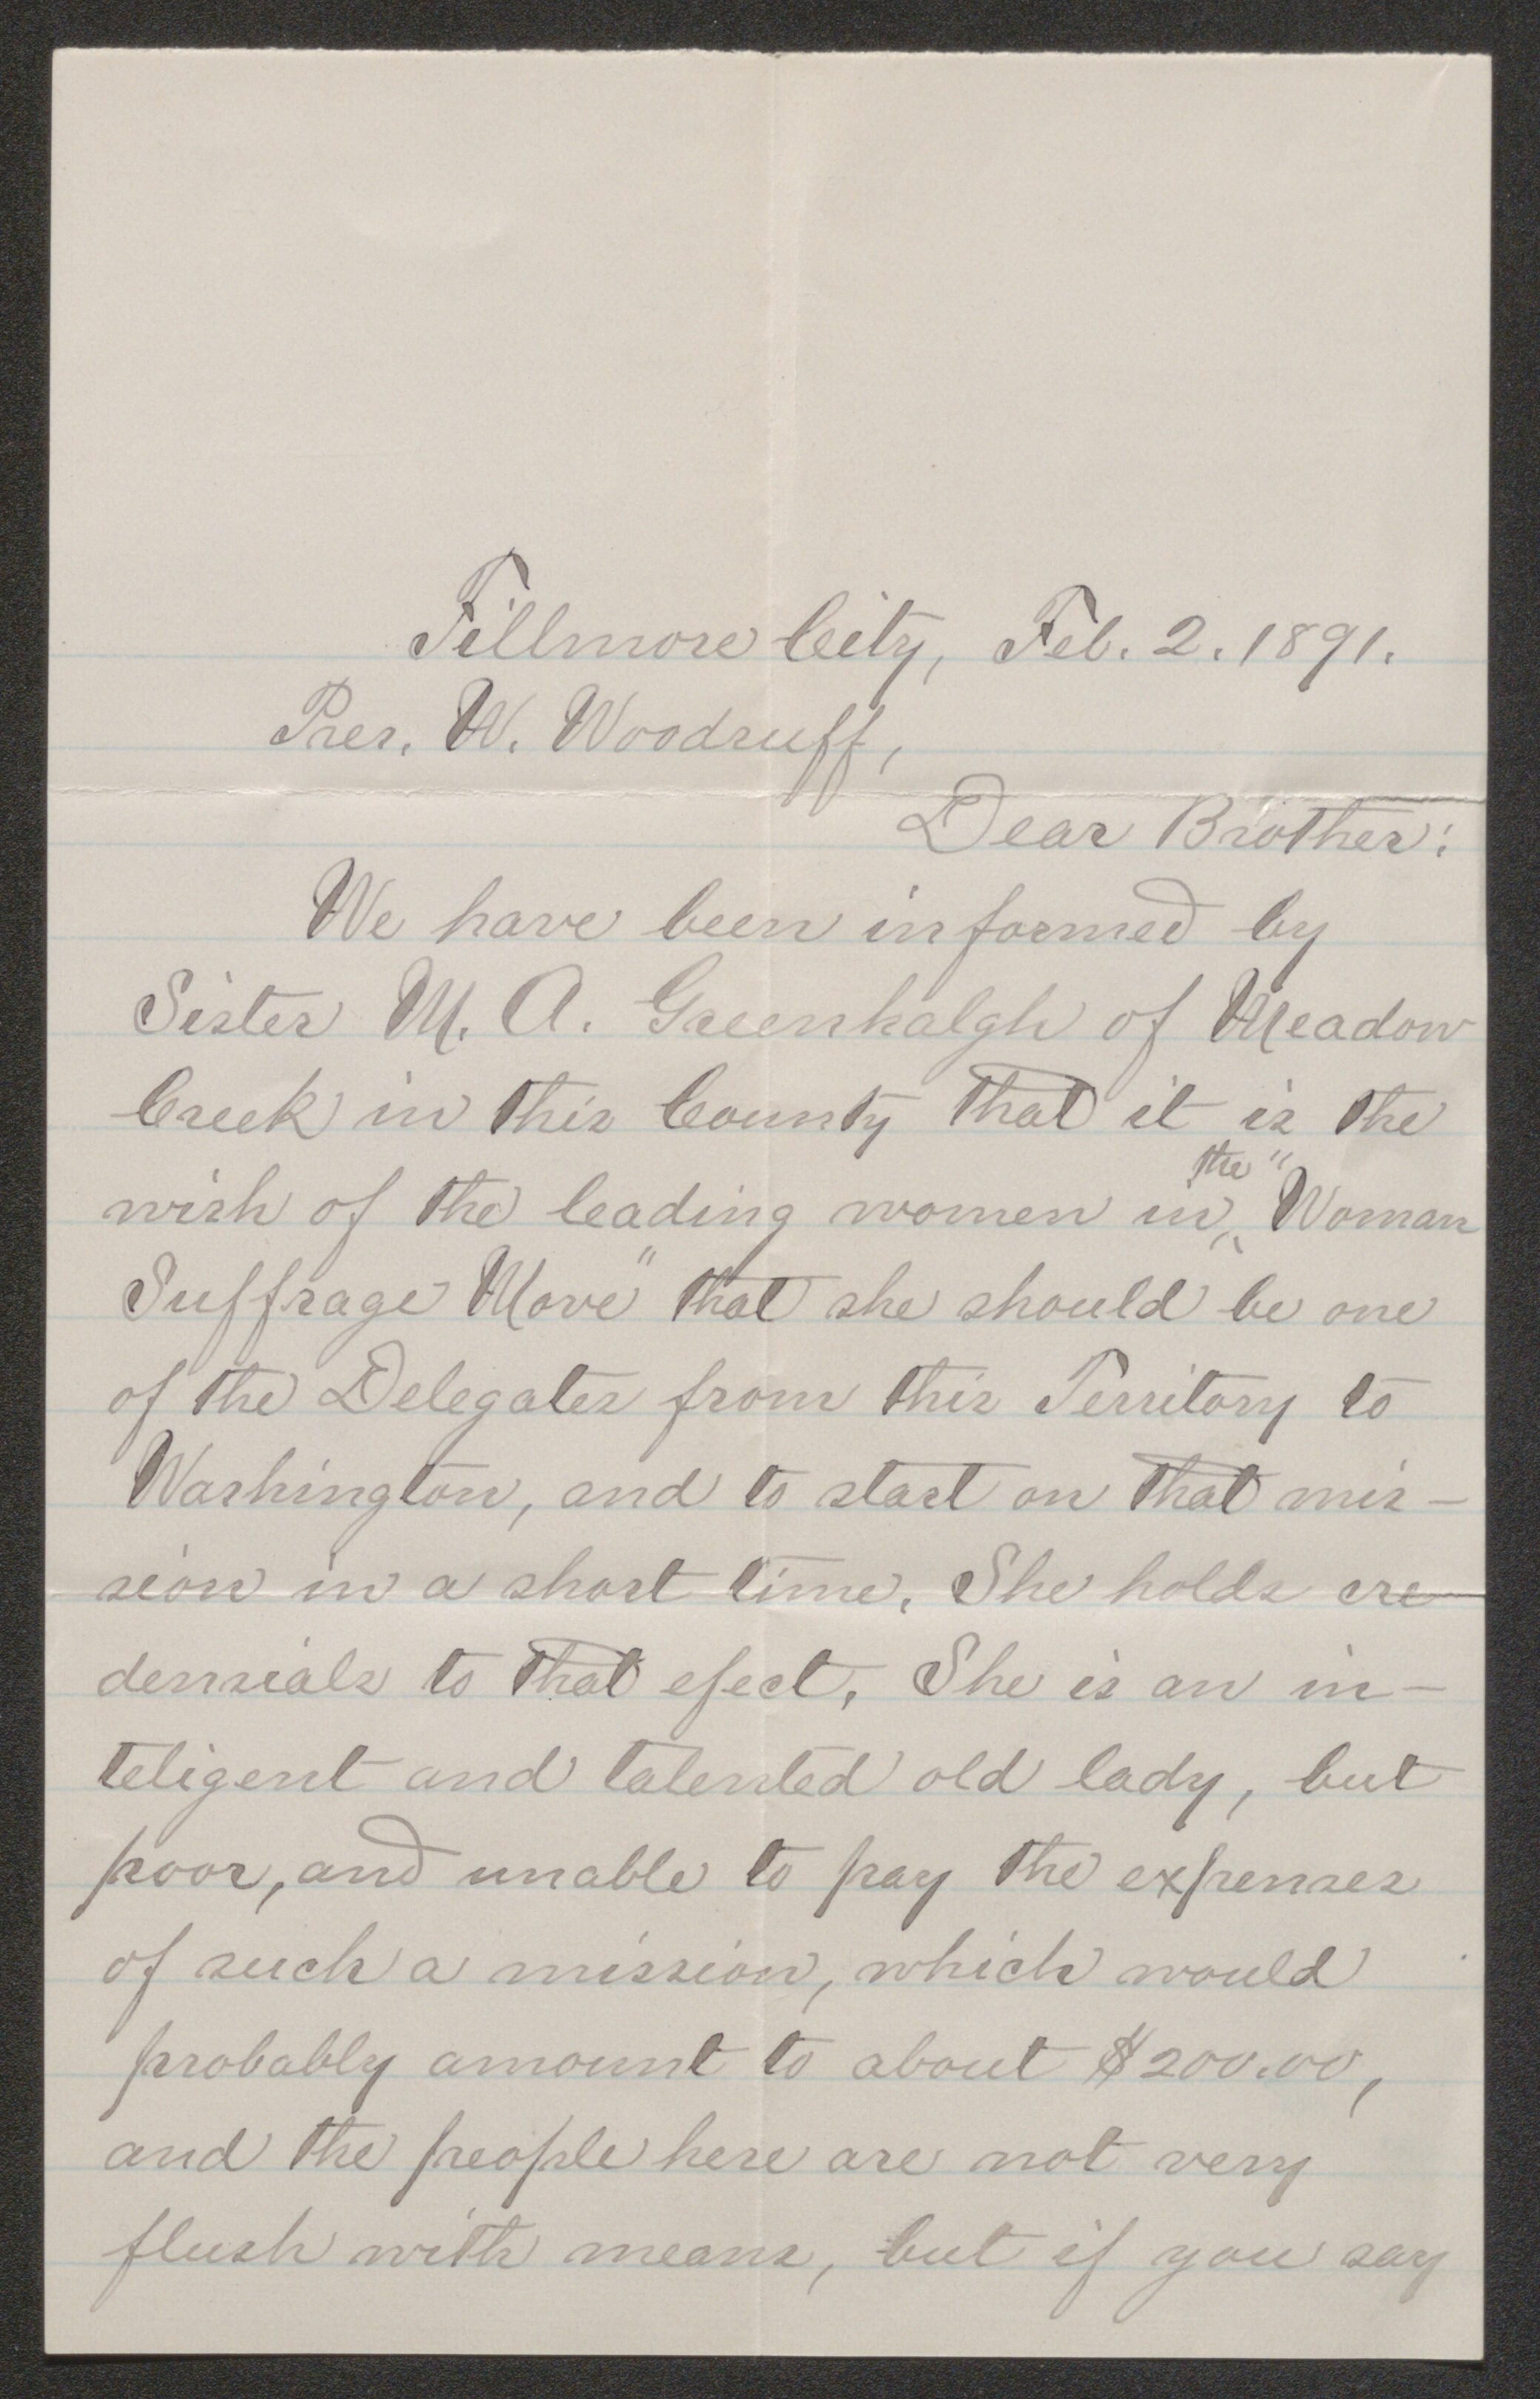 Fillmore City, Feb. 2. 1891.
Pres. W. Woodruff,
Dear Brother:
We have been informed by
Sister M. A. Greenhalgh of Meadow
Creek in this County that it is the
wish of the leading women in ^the^ "Woman
Suffrage Move" that she should be one
of the Delegates from this Territory to
Washington, and to start on that mis-
sion in a short time. She holds cre
densials to that efect. She is an in-
teligent and talented old lady, but
poor, and unable to pay the expenses
of such a mission, which would
probably amount to about $200.00,
and the people here are not very
flush with means, but if you say